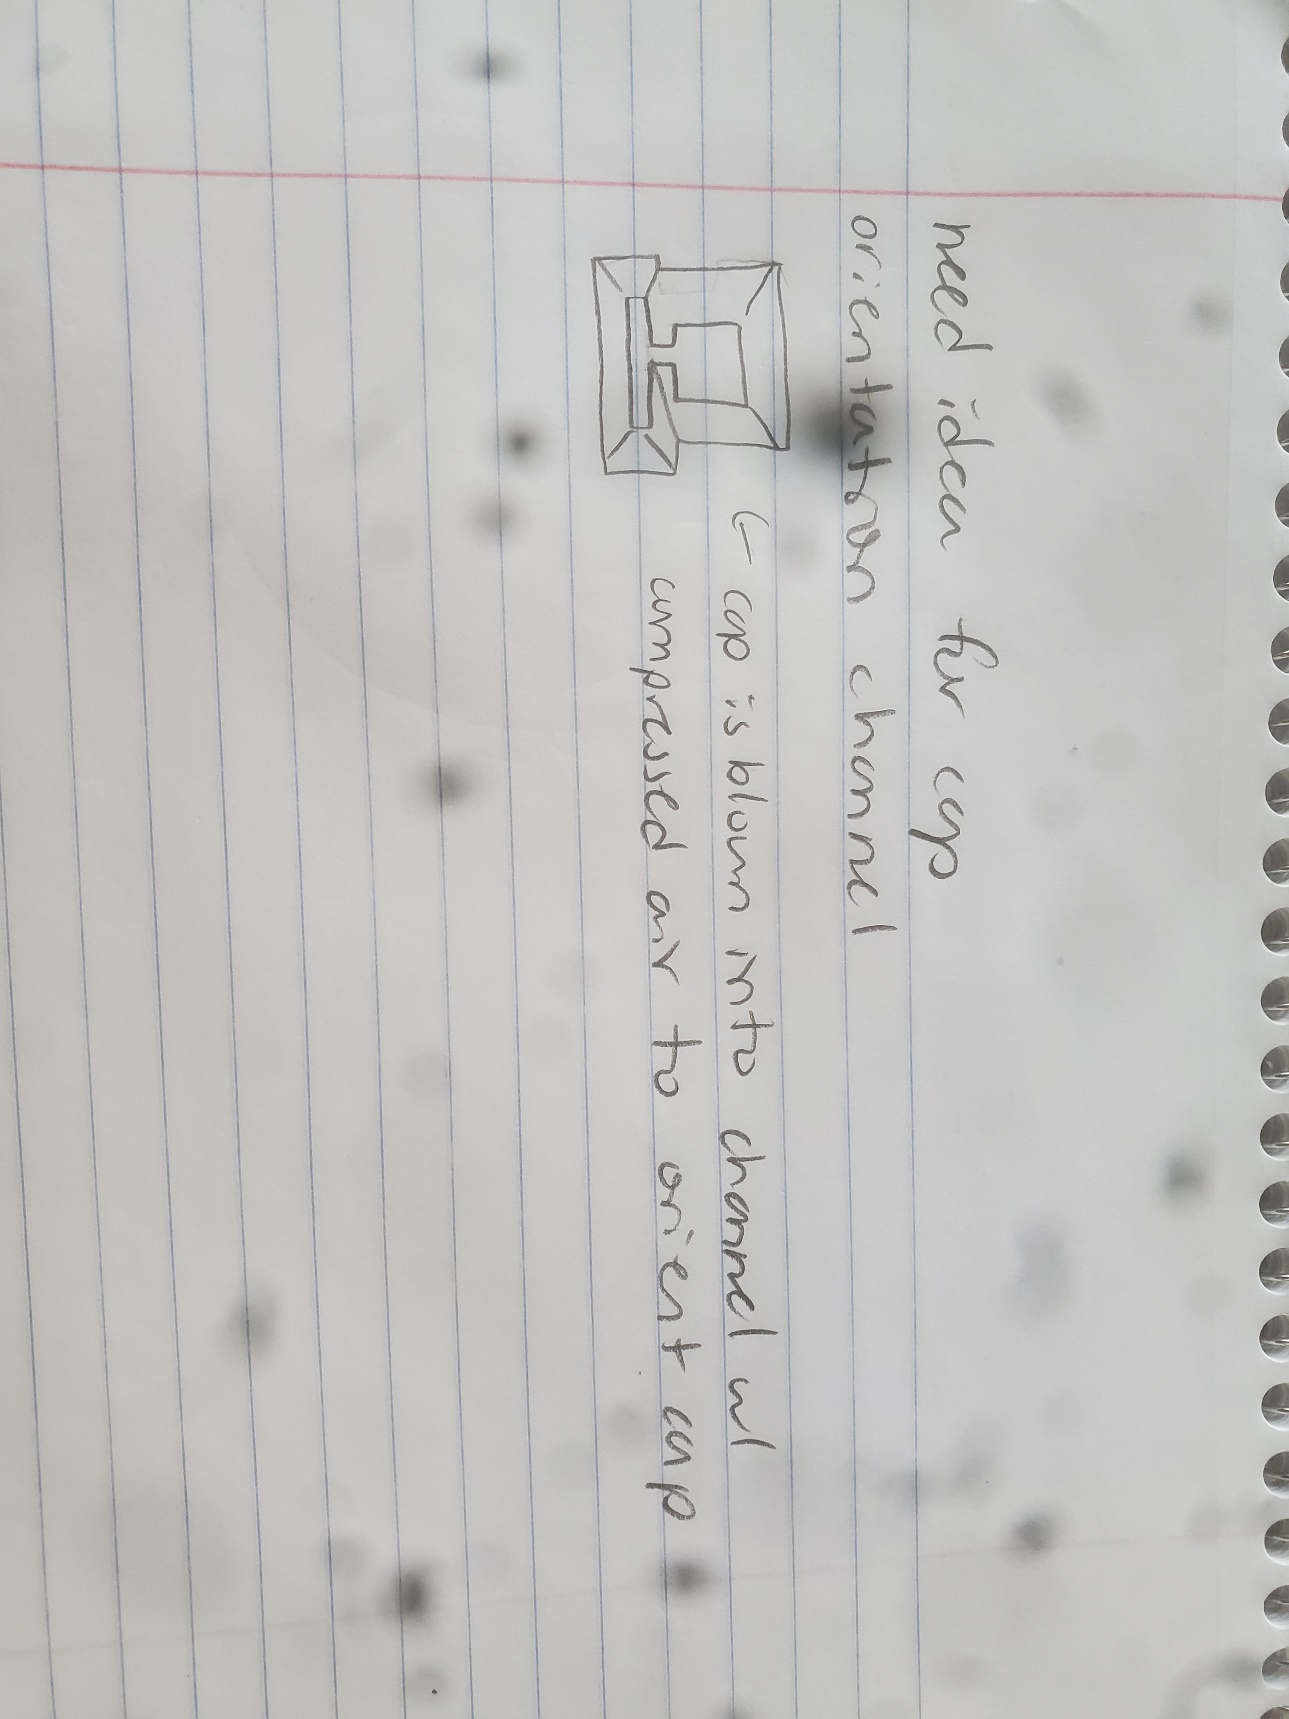 need idea for cap
orientation channel
← cap is blown into channel w/
compressed air to orient cap